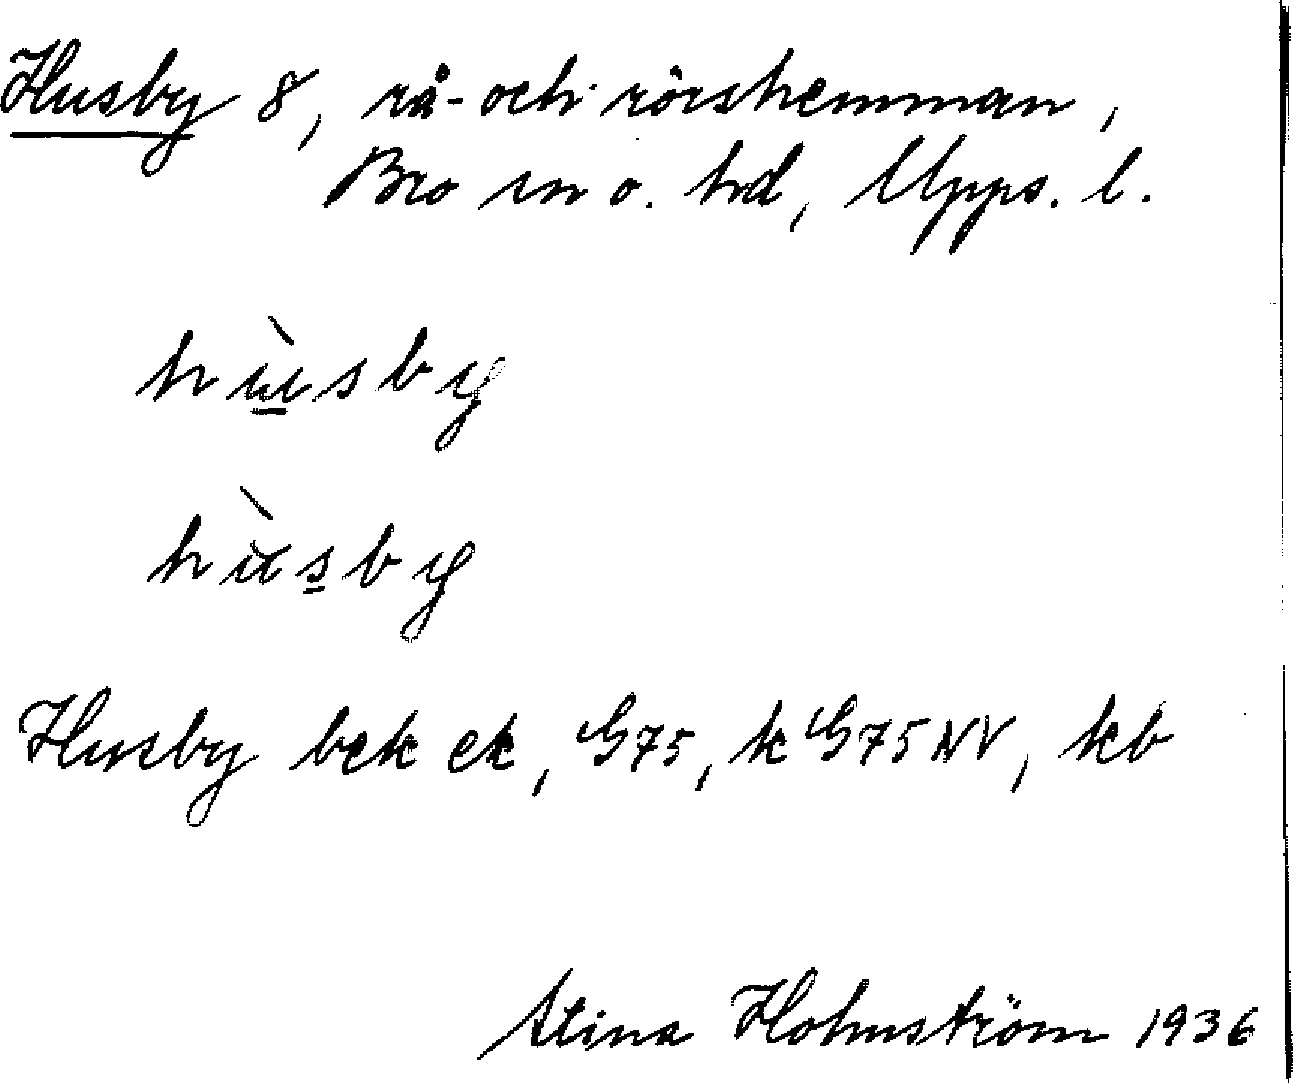 Husby 8, rå- och rörshemman,
Bro sn o. hd, Upps. l.
hù̲sby
hùs̲by
Husby bek ek, G75, k G75NV, kb
Stina Holmström 1936